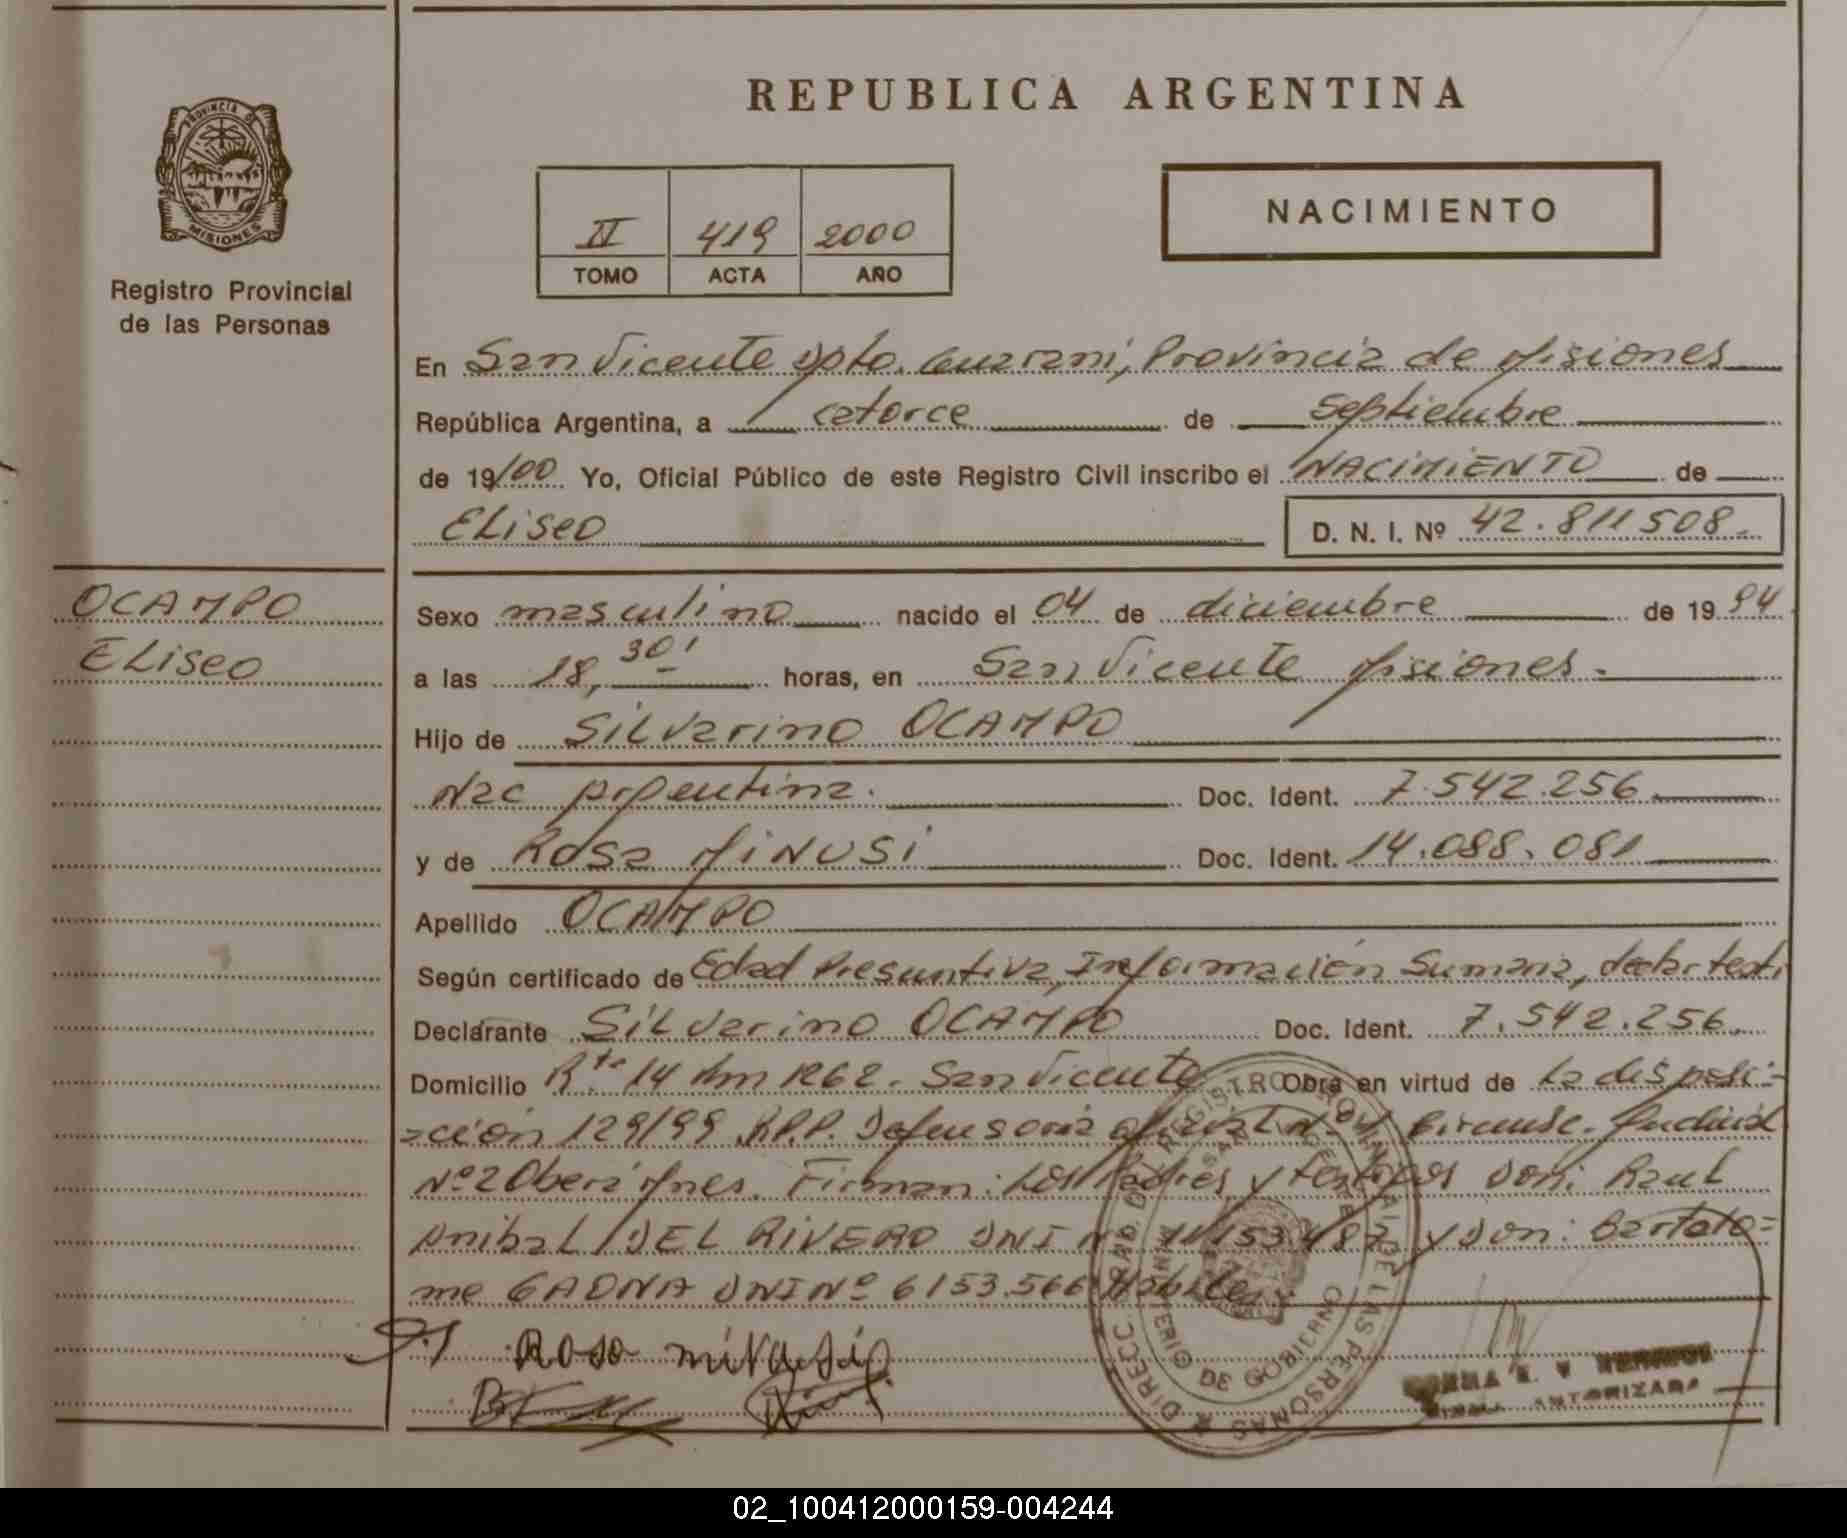 REPUBLICA ARGENTINA
PROVINCIA DE
MISIONES
Registro Provincial
de las Personas
II 419 2000
TOMO ACTA AÑO
NACIMIENTO
En San Vicente Dpto. Guarani, Provincia de Misiones
República Argentina, a catorce de Septiembre
de 19/00 Yo, Oficial Público de este Registro Civil inscribo el NACIMIENTO de
ELiseo D. N. I. Nº 42.811508.-
OCAMPO
ELiseo
Sexo masculino nacido el 04 de diciembre de 1994
a las 18,30' horas, en San Vicente Misiones.-
Hijo de SiLVerino OCAMPO
Nac Argentina. Doc. Ident. 7.542.256
y de Rosa MiNUSi Doc. Ident. 14.088.081
Apellido OCAMPO
Según certificado de Edad Presuntiva, Información Sumaria, declar testi
Declarante SiLVerino OCAMPO Doc. Ident. 7.542.256.
Domicilio Rta. 14 Km 1262. San Vicente Obra en virtud de La disposi=
=ción 129/99 R.P.P. Defensoria Oficial Nº Circunsc. Judicial
Nº2 Obera Mnes. Firman: Los Padres y testigos Don: Raul
Anibal DEL RIVERO DNI Nº 11153.487 y Don: Bartolo=
me GAONA DNI Nº 6153.566 Habiles.-
Rosa
DIRECC. GRAL. DEL REGISTRO PROVINCIAL DE LAS PERSONAS
MINISTERIO DE GOBIERNO
AUTORIZADA
02_100412000159-004244